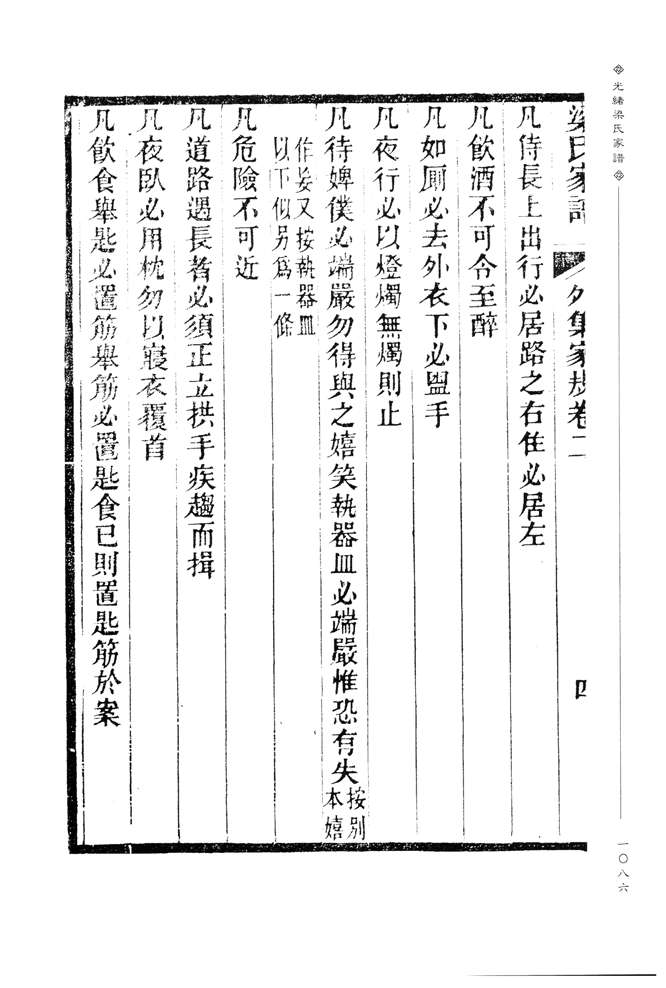 光緒梁氏家譜
一〇八六
梁氏家譜 外集家規卷二 四
凡侍長上出行必居路之右住必居左
凡飲酒不可令至醉
凡如厠必去外衣下必盥手
凡夜行必以燈燭無燭則止
凡待婢僕必端嚴勿得與之嬉笑執器皿必端嚴惟恐有失按別
本嬉
作妄又按執器皿
以下似另爲一條
凡危險不可近
凡道路遇長者必須正立拱手疾趨而揖
凡夜臥必用枕勿以寢衣覆首
凡飲食舉匙必置筋舉筋必置匙食已則置匙筋於案